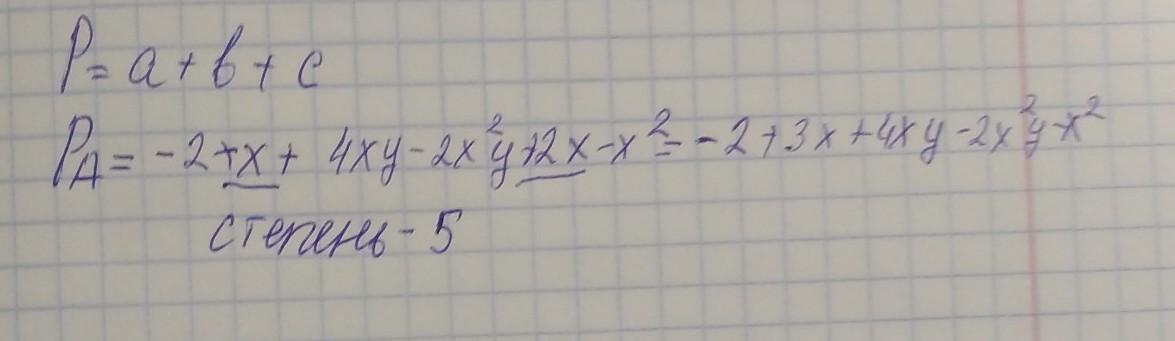 P = a + b + c
P_A = -2 + x + 4xy - 2x²y + 2x - x² = -2 + 3x + 4xy - 2x²y - x²
степень - 5